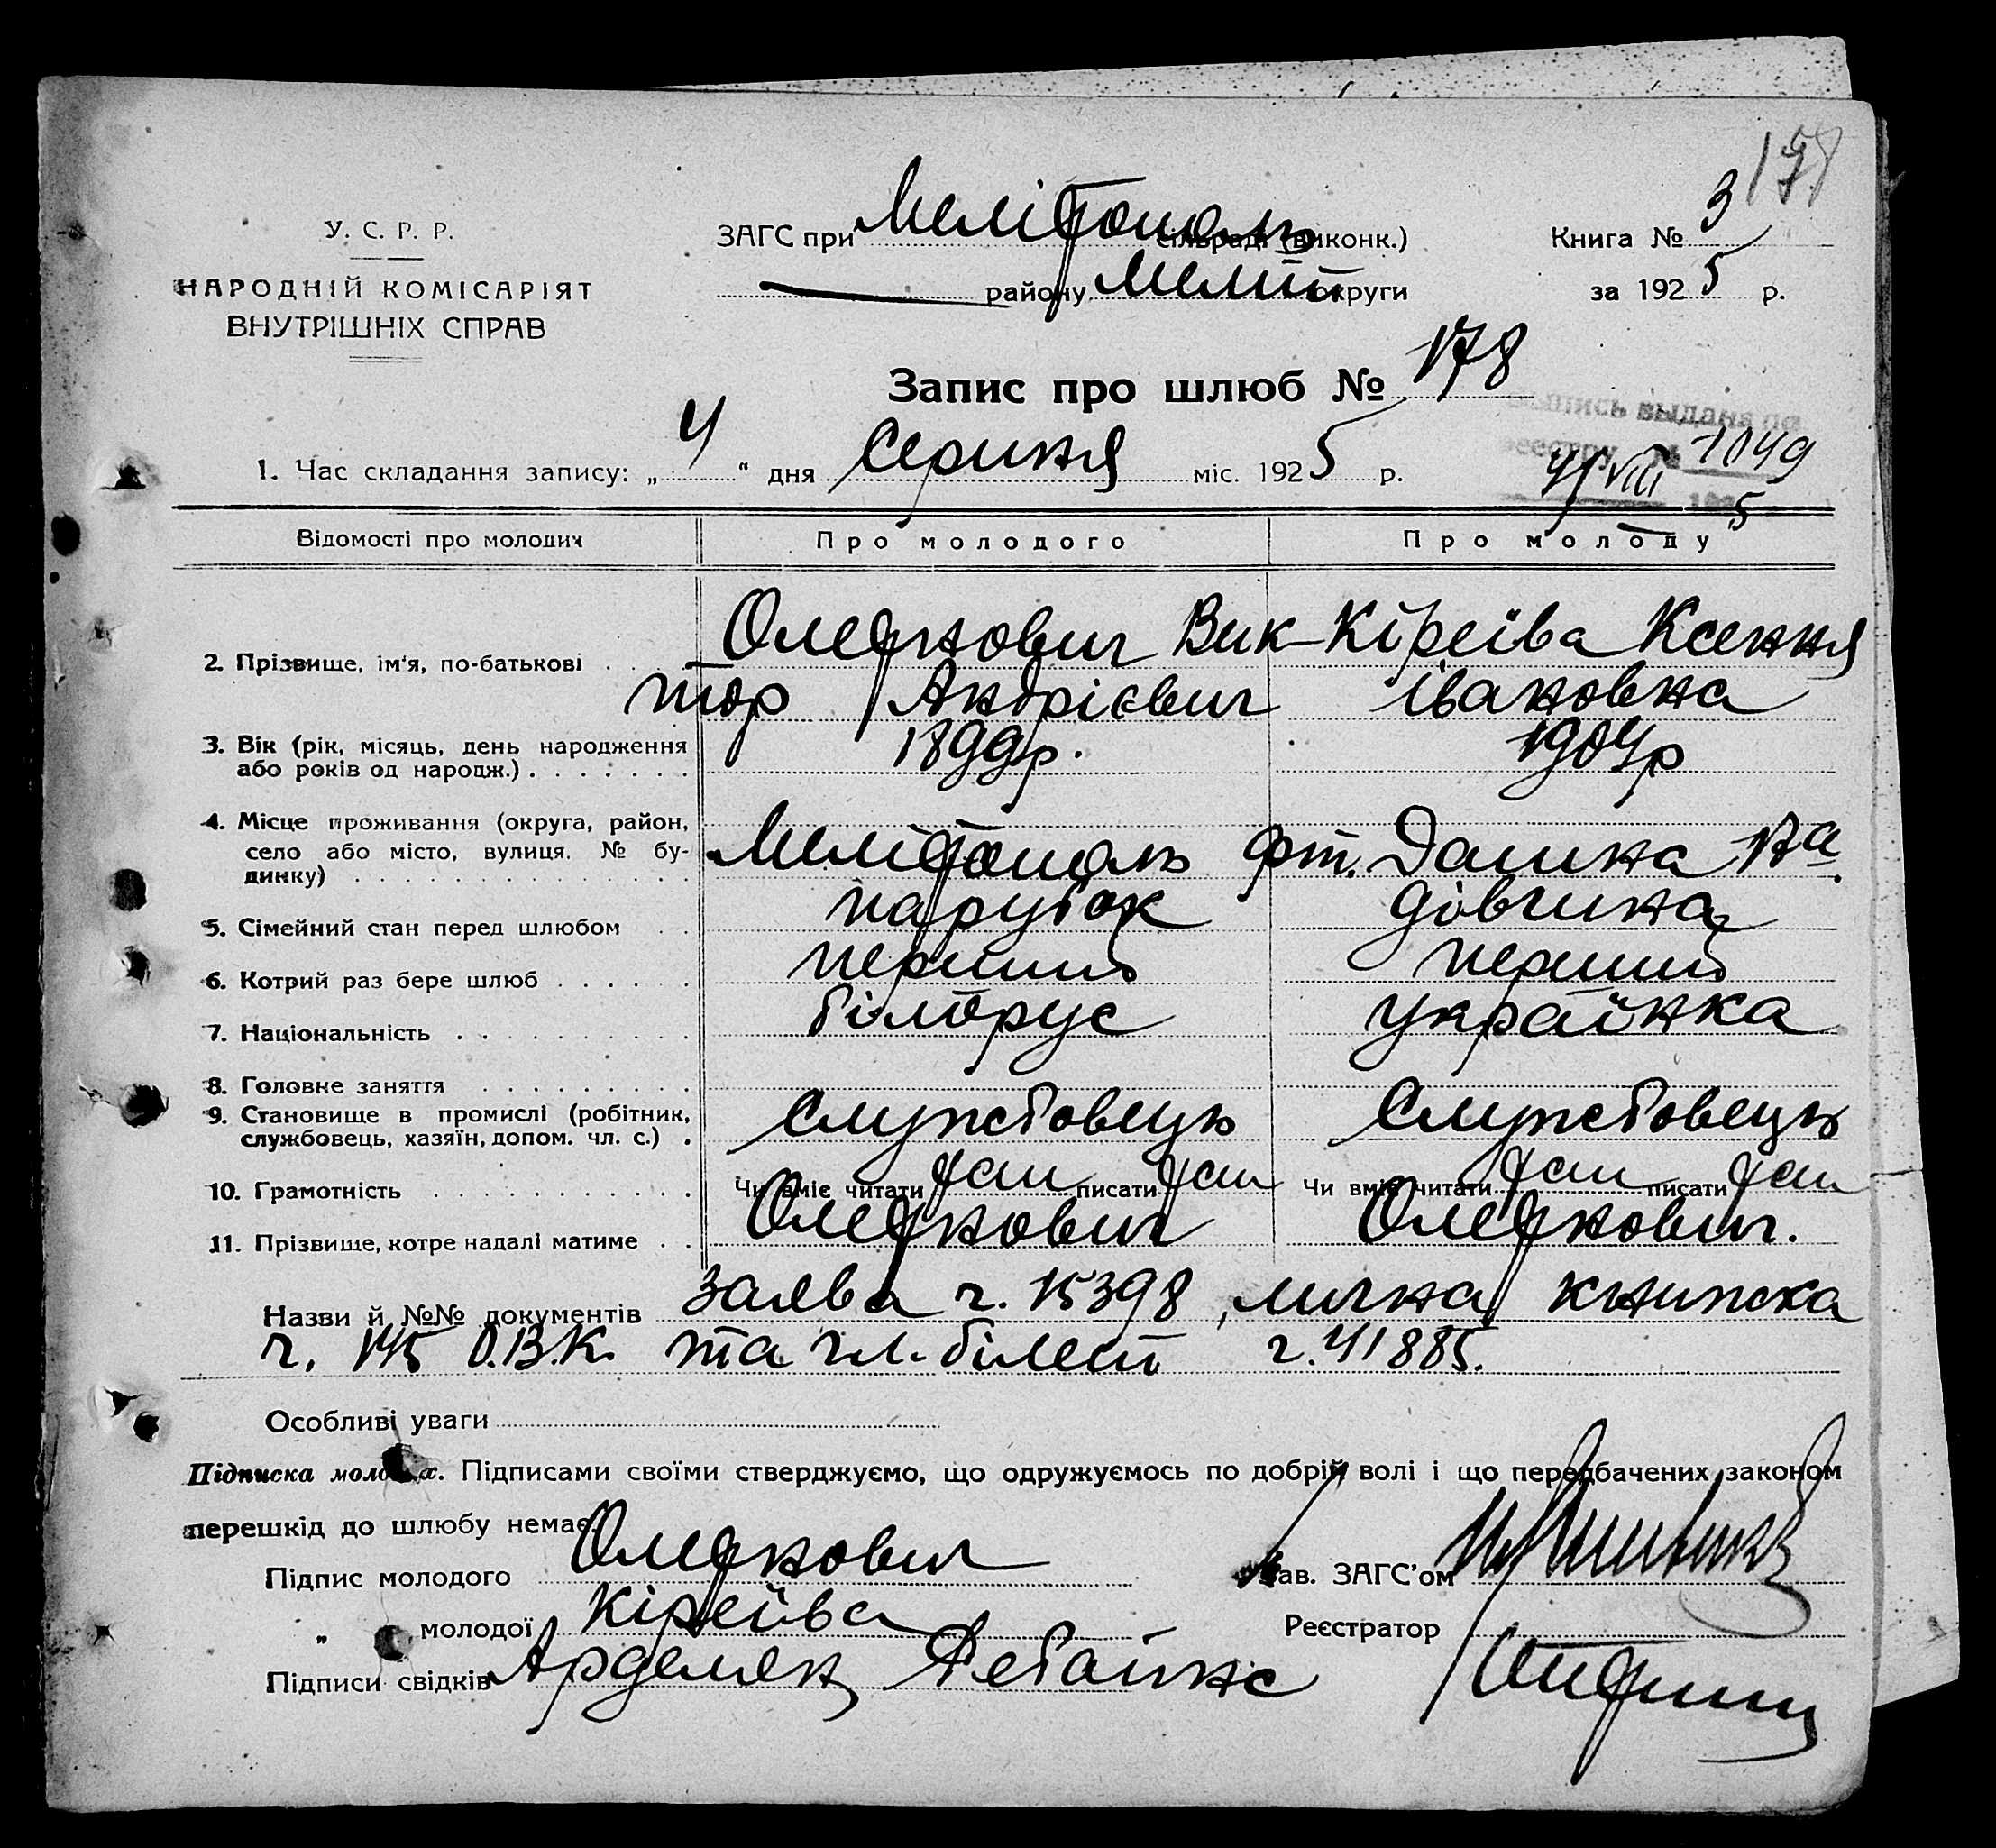 178
У. С. Р. Р.
НАРОДНІЙ КОМІСАРІЯТ
ВНУТРІШНІХ СПРАВ
ЗАГС при Мелітополь сільраді (виконк.)
району Меліт. округи
Книга № 3
за 1925 р.
Запис про шлюб № 178
Выпись выдана по
реестру № 1049
4/VIII 1925
1. Час складання запису: „ 4 “ дня Серпня міс. 1925 р.
Відомості про молодих Про молодого Про молоду
2. Прізвище, ім'я, по-батькові Олефкович Вик- Кіреїва Ксенния
тор Андрієвич Івановна
3. Вік (рік, місяць, день народження 1899р. 1904р
або років од народж.)
4. Місце проживання (округа, район,
село або місто, вулиця. № бу- Мелітополь Фт. Даника 17а.
динку)
5. Сімейний стан перед шлюбом парубок дівчина
6. Котрий раз бере шлюб перший перший
7. Національність білорус українка
8. Головне заняття
9. Становище в промислі (робітник, Служебовець Служебовець
службовець, хазяїн, допом. чл. с.)
10. Грамотність Чи вміє читати так писати так Чи вміє читати так писати так
11. Прізвище, котре надалі матиме Олефкович Олефкович.
Назви й №№ документів заява ч. 15398, лична книжска
ч. 145 О.В.К. та чл. білет ч. 41885.
Особливі уваги
Підписка молодих. Підписами своїми стверджуємо, що одружуємось по добрій волі і що передбачених законом
перешкід до шлюбу немає.
Підпис молодого Олефкович
„ молодої Кіреїва
Підписи свідків
Зав. ЗАГС'ом
Реєстратор